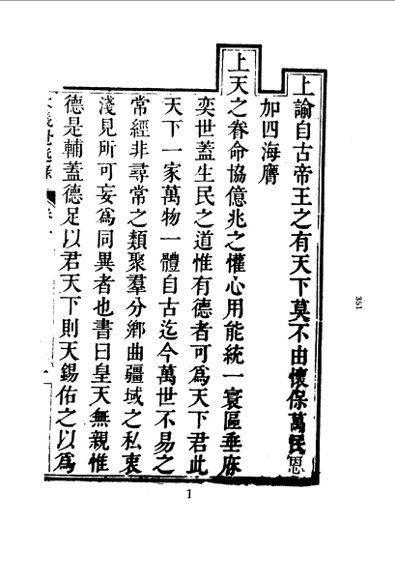 上諭自古帝王之有天下莫不由懷保萬民恩
加四海膺
上天之眷命協億兆之懽心用能統一寰區垂庥
奕世蓋生民之道惟有德者可爲天下君此
天下一家萬物一體自古迄今萬世不易之
常經非尋常之類聚羣分鄉曲疆域之私衷
淺見所可妄爲同異者也書曰皇天無親惟
德是輔蓋德足以君天下則天錫佑之以爲
351
1